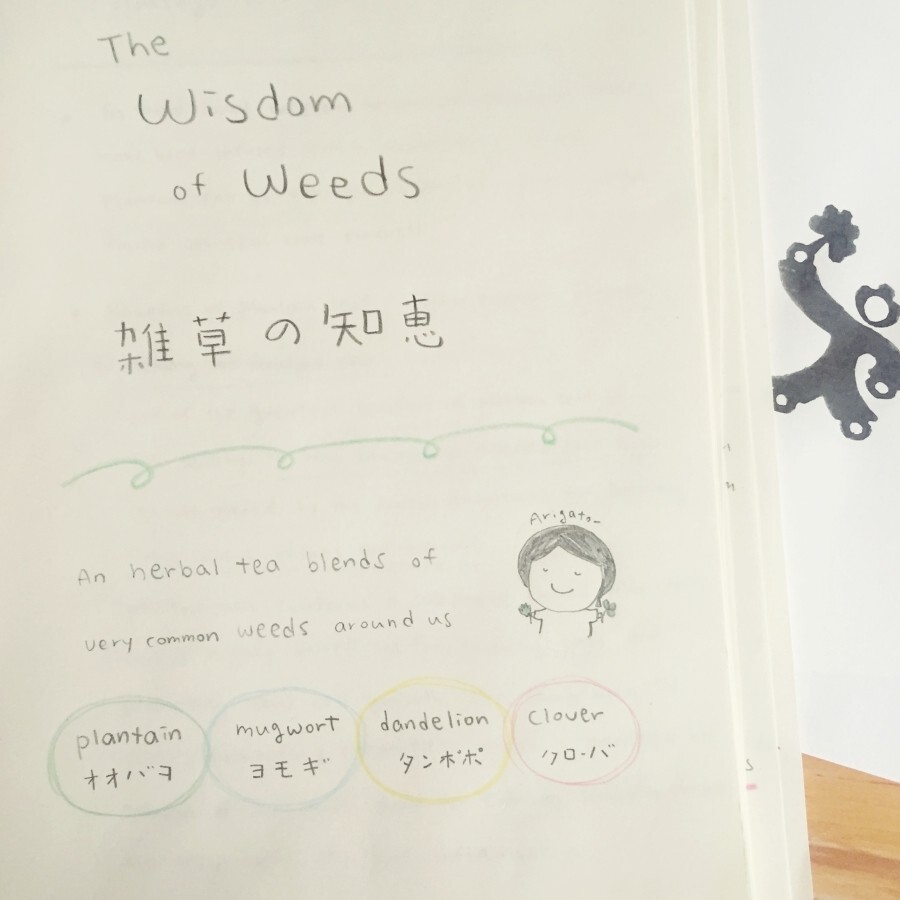 The
Wisdom
of Weeds
雑草の知恵
Arigato-
An herbal tea blends of
very common weeds around us
plantain
オオバヨ
mugwort
ヨモギ
dandelion
タンポポ
clover
クローバ